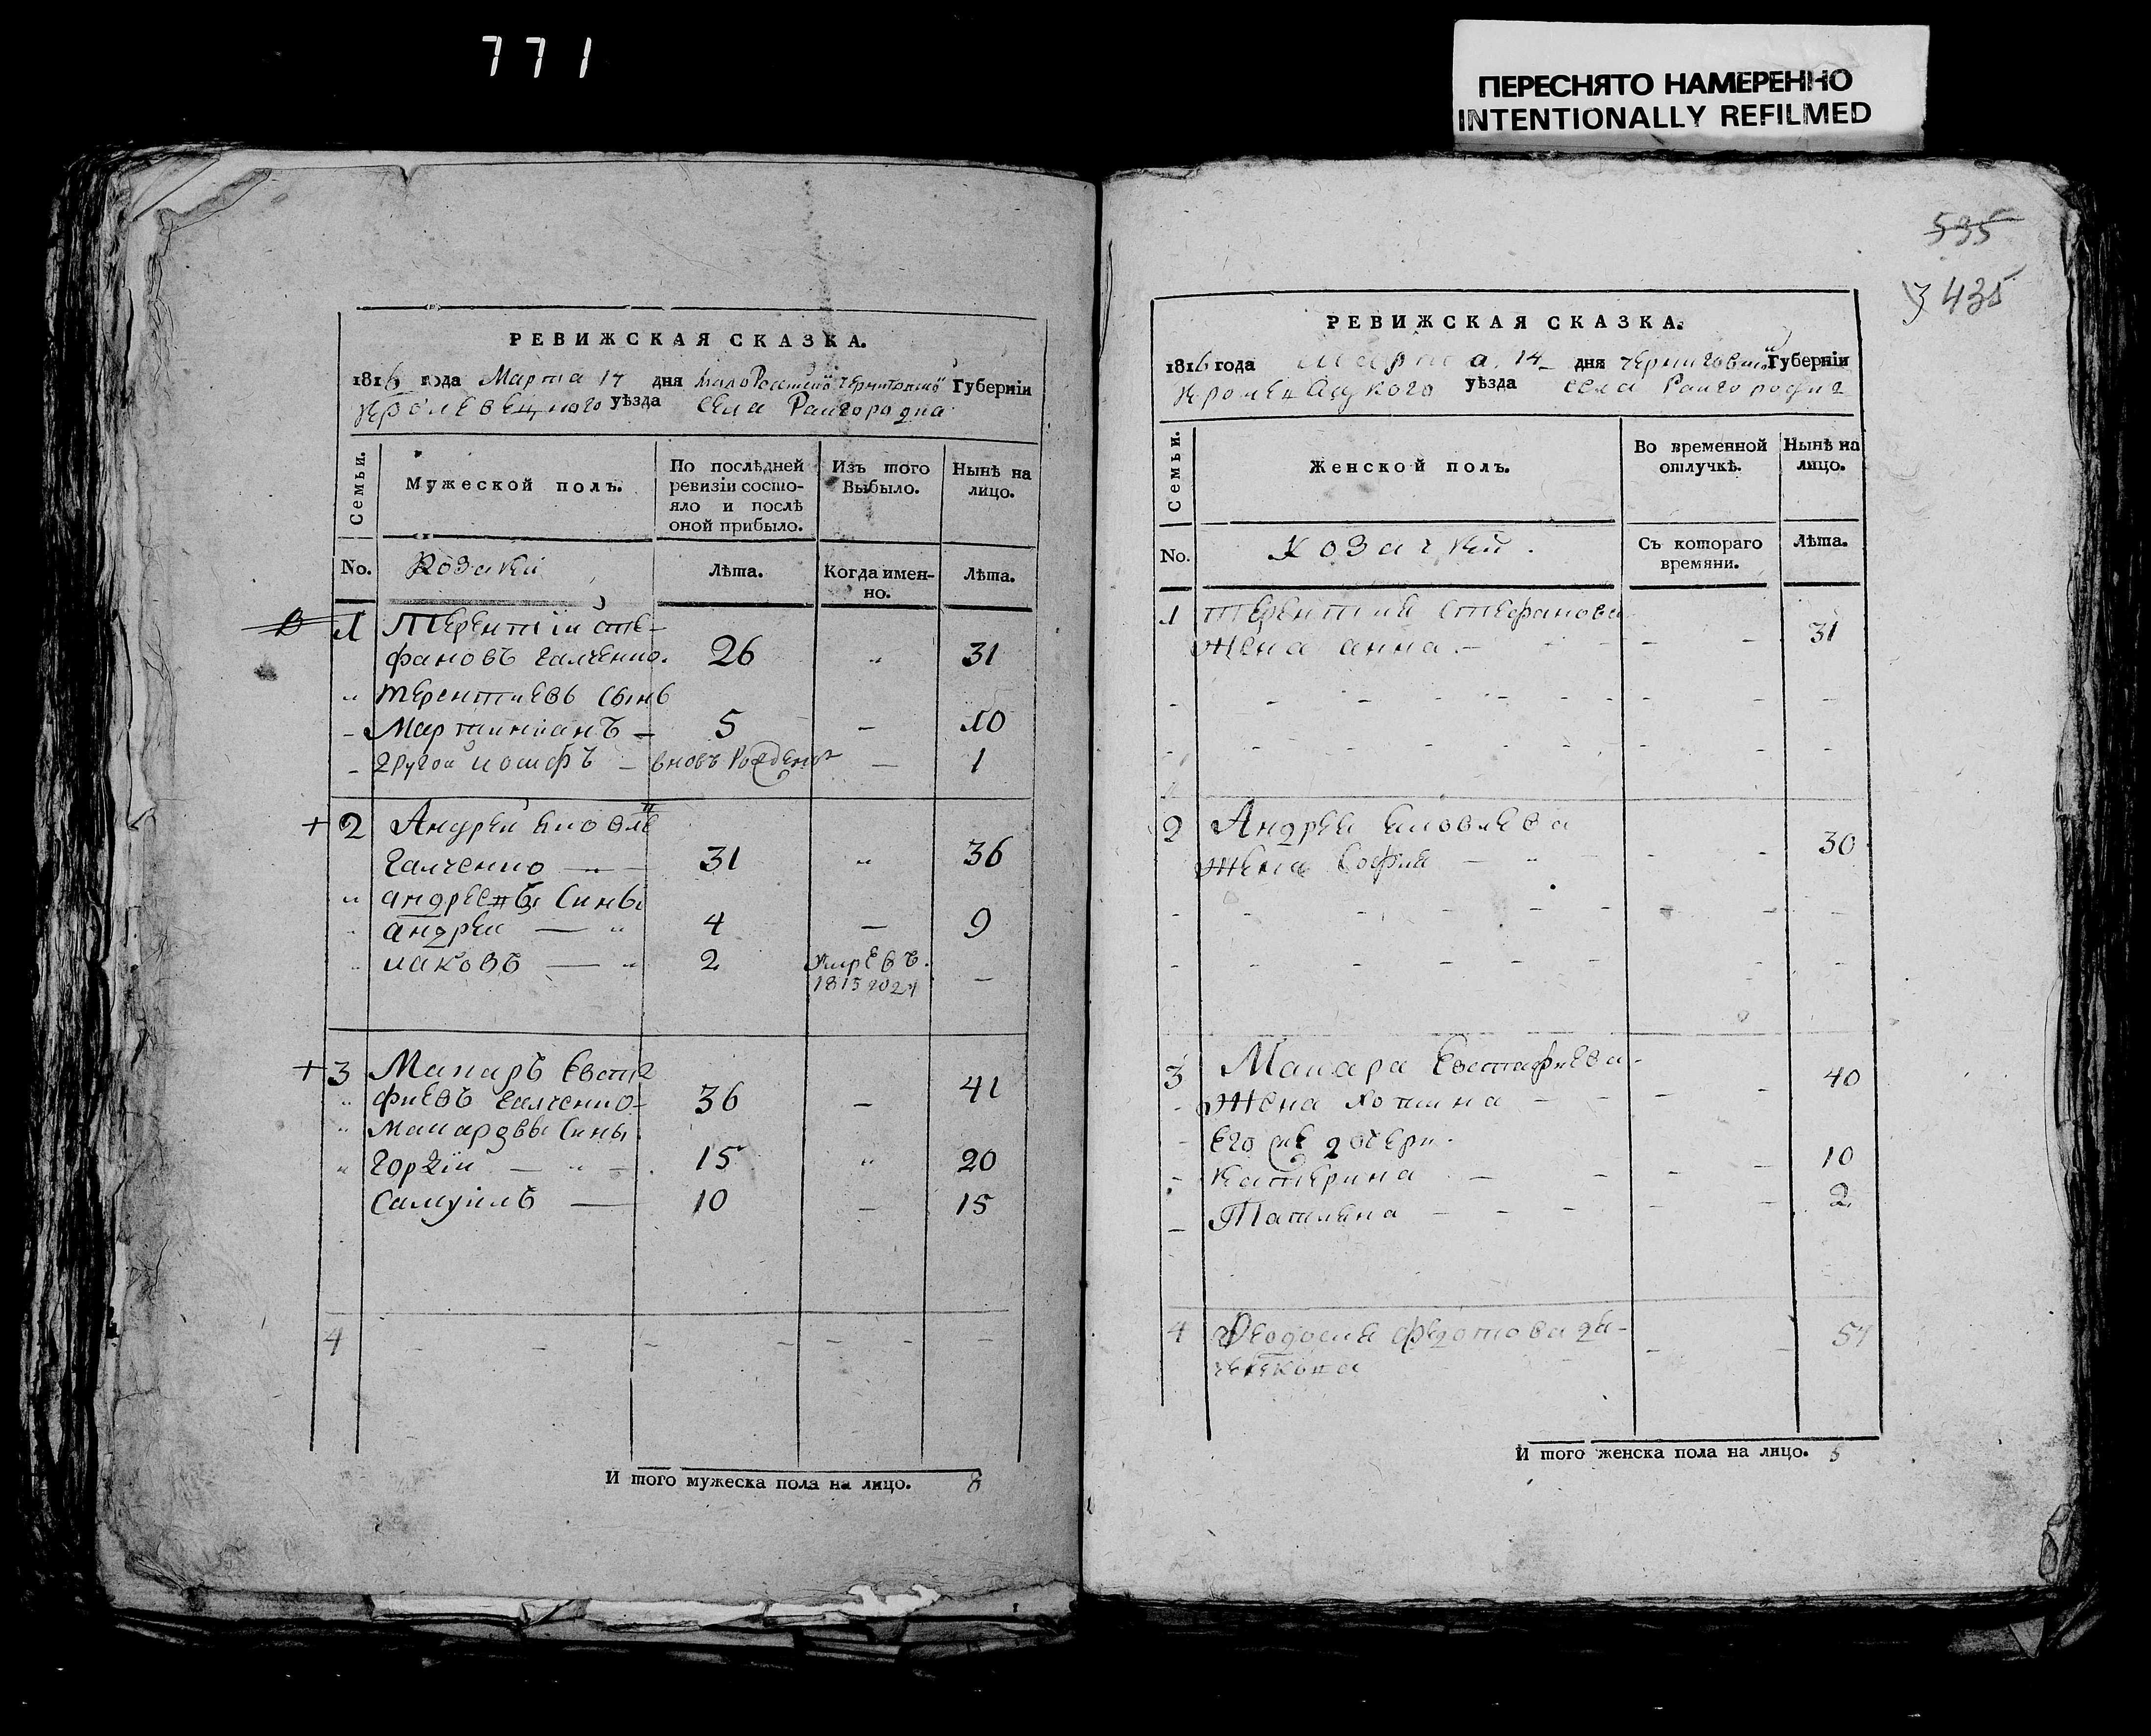 771
ПЕРЕСНЯТО НАМЕРЕННО
INTENTIONALLY REFILMED
РЕВИЖСКАЯ СКАЗКА.
1816 года Марта 14 дня Губерніи
уѣзда села Райгородка
Семьи.
Мужеской полъ.
По послѣдней ревизіи состо-
яло и послѣ
оной прибыло.
Изъ того Выбыло.
Нынѣ на лицо.
No. Козаки Лѣта. Когда имен-
но. Лѣта.
1 Терентий Сте-
фановъ Галченко. 26 " 31
" терентиевъ сынъ
Мартиниянъ 5 — 10
другой иосифъ — вновь рожденъ — 1
+ 2 Андрей
Галченко 31 " 36
" сины
андрей — " 4 — 9
иаковъ — " 2 умре въ.
1815 году —
+ 3 Макаръ Евста
фиевъ Галченко 36 — 41
" макаровы сины
" 15 " 20
Самуилъ — 10 — 15
4 - - - - - - -
И того мужеска пола на лицо. 8
535
435
РЕВИЖСКАЯ СКАЗКА.
1816 года Марта 14 дня Губерніи
уѣзда села
Семьи.
Женской полъ.
Во временной отлучкѣ.
Нынѣ на лицо.
No. Козачки. Съ котораго времяни. Лѣта.
1 терентия Стефанова
жена анна. 31
2 Андрея
жена София 30
3 Макара Евстафиева
жена 40
его дочери
катерина 10
Татияна 2
4 Феодосия федотова
5
И того женска пола на лицо.